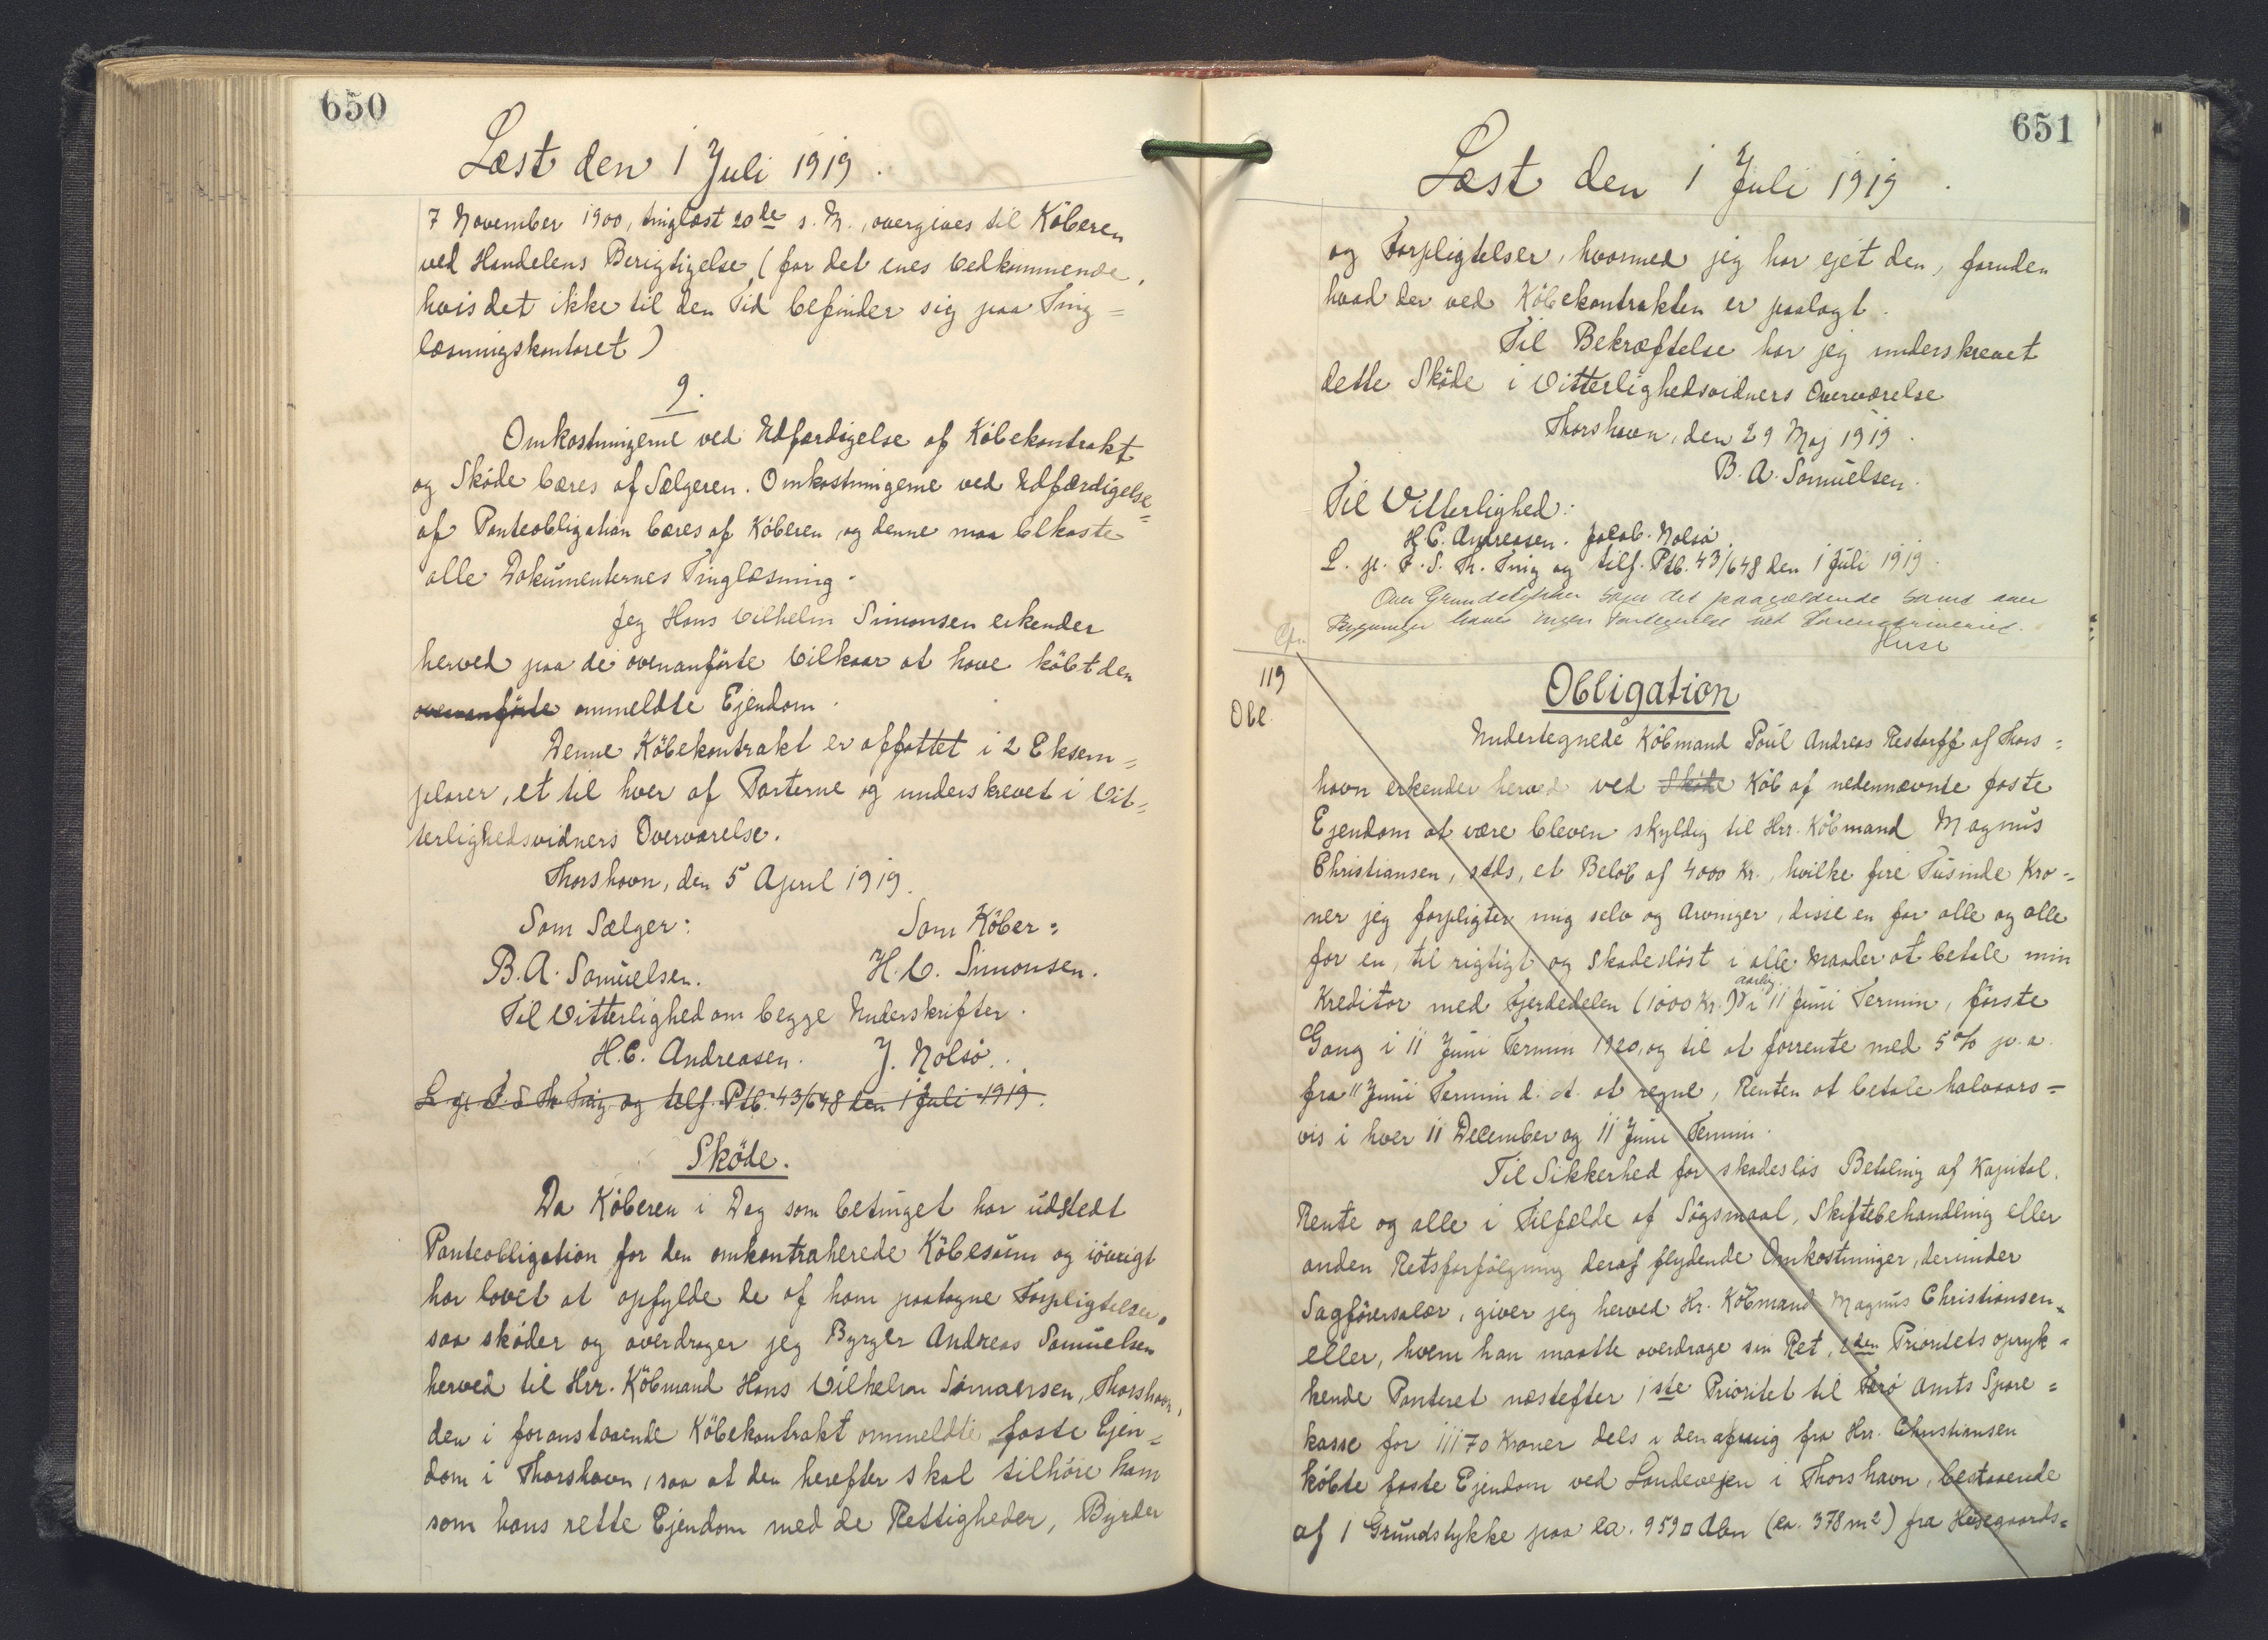 650
Læst den 1 Juli 1919.
7 November 1900, tinglæst 20de s. M., overgives til Köberen
ved Handelens Berigtigelse (for det enes Vedkommende,
hvis det ikke til den Tid befinder sig paa Ting=
læsningskontoret)
9.
Omkostningerne ved Udfærdigelse af Köbekontrakt
og Sköde bæres af Sælgeren. Omkostningerne ved Udfærdigelse
af Panteobligation bæres af Köberen og denne maa bekoste
alle Dokumenternes Tinglæsning.
Jeg Hans Vilhelm Simonsen erkender
herved paa de ovenanförte Vilkaar at have köbt den
ovenanförte ommeldte Ejendom.
Denne Köbekontrakt er affattet i 2 Eksem=
plarer, et til hver af Parterne og underskrevet i Vit=
terlighedsvidners Overværelse.
Thorshavn, den 5 April 1919.
Som Sælger: Som Köber:
B. A. Samuelsen. H. V. Simonsen.
Til Vitterlighed om begge Underskrifter.
H. C. Andreasen. J. Nolsö.
L. p. F. S. Th. Ting og tilf. Ptb. 43/648 den 1 Juli 1919.
Sköde.
Da Köberen i Dag som betinget har udstedt
Panteobligation for den omkontraherede Köbesum og iövrigt
har lovet at opfylde de af ham paatagne Forpligtelser,
saa sköder og overdrager jeg Byrger Andreas Samuelsen
herved til Hrr. Köbmand Hans Vilhelm Simonsen, Thorshavn,
den i foranstaaende Köbekontrakt ommeldte faste Ejen=
dom i Thorshavn, saa at den herefter skal tilhöre ham
som hans rette Ejendom med de Rettigheder, Byrder
651
Læst den 1 Juli 1919.
og Forpligtelser, hvormed jeg har ejet den, foruden
hvad der ved Köbekontrakten er paalagt.
Til Bekræftelse har jeg underskrevet
dette Sköde i Vitterlighedsvidners Overværelse
Thorshavn, den 29 Maj 1919.
B. A. Samuelsen.
Til Vitterlighed:
H. C. Andreasen. Jacob Nolsö.
L. p. F. S. Th. Ting og tilf. Ptb. 43/648 den 1 Juli 1919.
Over Grundstykker som det paagældende samt over
Bygninger haves ingen Fortegnelse ved Sorenskriveriet.
119
Obl.
Obligation
Undertegnede Köbmand Poul Andreas Restorff af Thors=
havn erkender herved ved Sköde Köb af nedennævnte faste
Ejendom at være bleven skyldig til Hrr. Köbmand Magnus
Christiansen, sads, et Belöb af 4000 Kr., hvilke fire Tusinde Kro=
ner jeg forpligter mig selv og Arvinger, disse en for alle og alle
for en, til rigtigt og skadeslöst i alle Maader at betale min
Kreditor med Fjerdedelen (1000 Kr.) aarlig i 11 Juni Termin, förste
Gang i 11 Juni Termin 1920, og til at forrente med 5 % p. a.
fra 11 Juni Termin d. A. at regne, Renten at betale halvaars=
vis i hver 11 December og 11 Juni Termin.
Til Sikkerhed for skadeslös Betaling af Kapital,
Rente og alle i Tilfælde af Sögsmaal, Skiftebehandling eller
anden Retsforfölgning deraf flydende Omkostninger, derunder
Sagförersalær, giver jeg herved Hr. Köbmand Magnus Christiansen,
eller, hvem han maatte overdrage sin Ret, 2den Prioritets opryk=
kende Panteret næstefter 1ste Prioritet til Færö Amts Spare=
kasse for 11170 Kroner dels i den af mig fra Hrr. Christiansen
köbte faste Ejendom ved Landevejen i Thorshavn, bestaaende
af 1 Grundstykke paa ca. 959 □ Alen (ca. 378 m2) fra Husegaards=